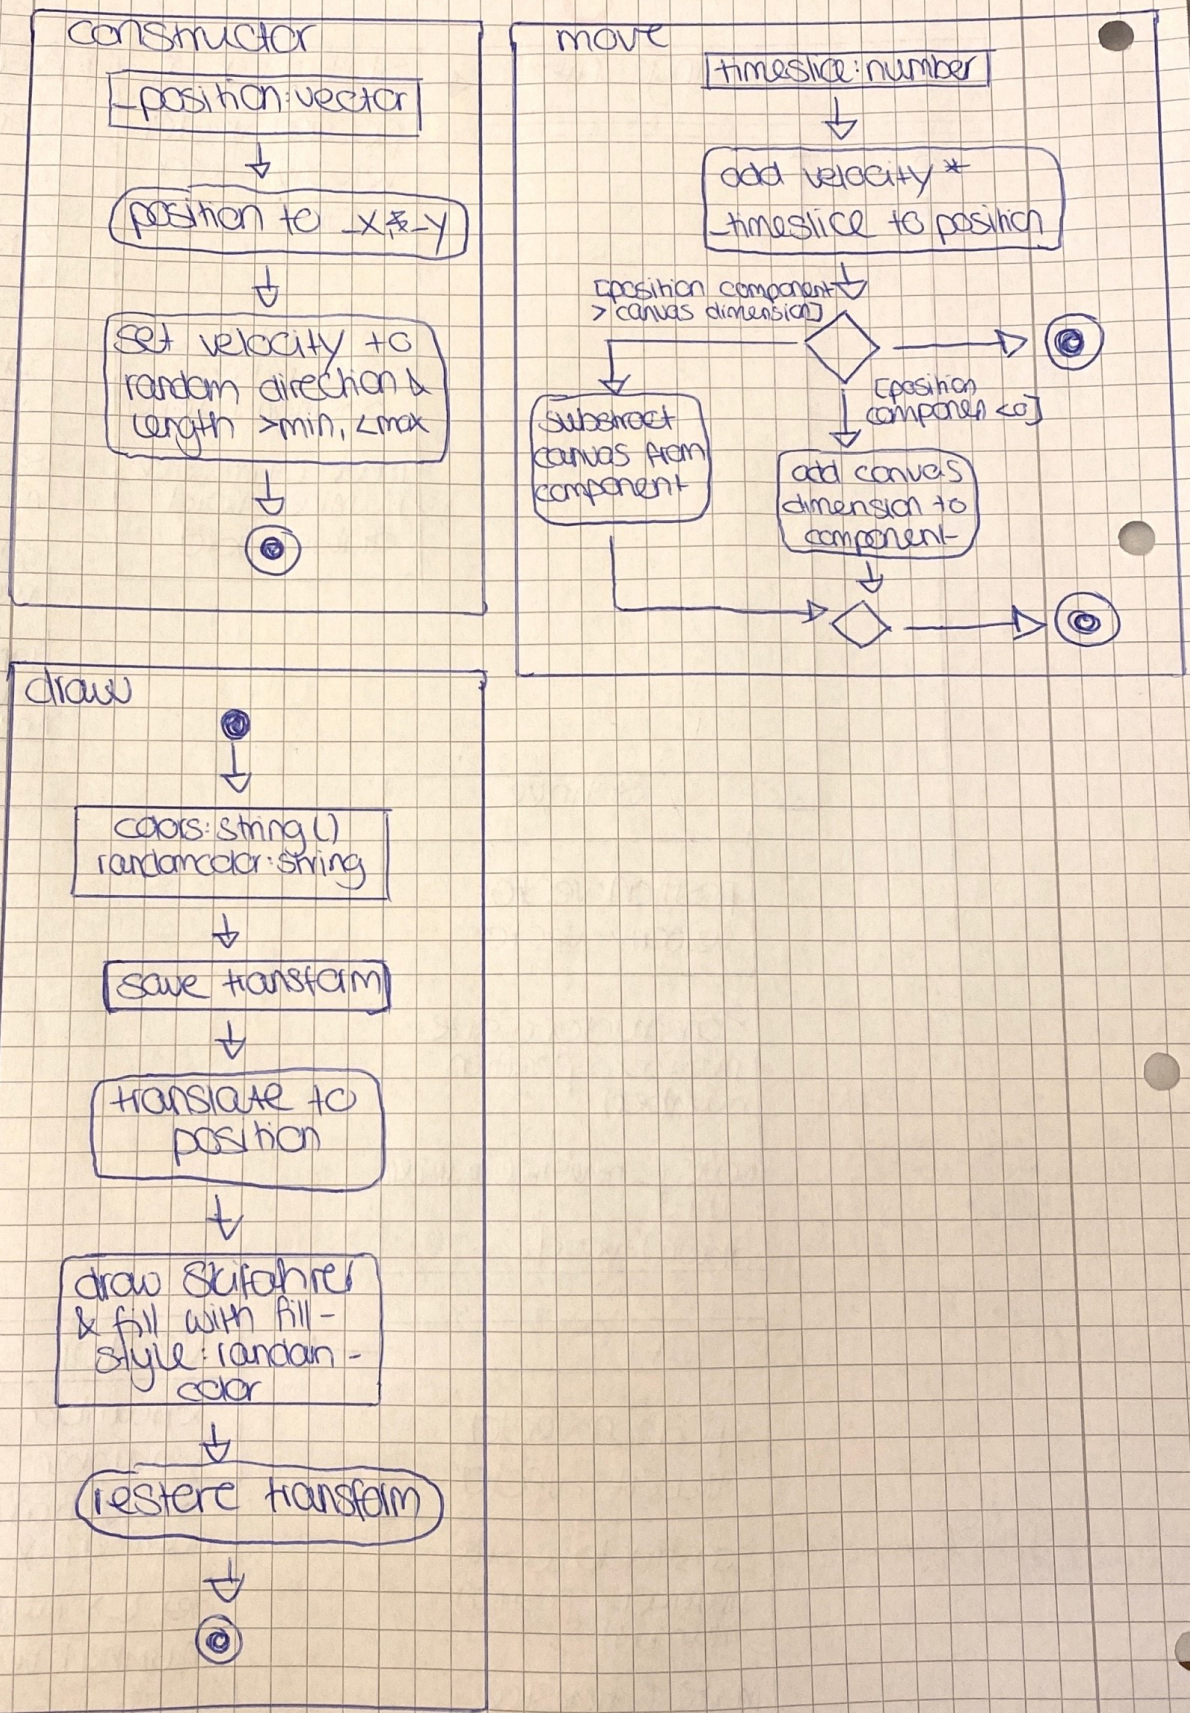 constructor
_position:vector
position to _x & _y
set velocity to
random direction &
length >min, <max
move
_timeslice:number
add velocity *
_timeslice to position
[position component
> canvas dimension]
[position
componen <0]
substract
canvas from
component
add canvas
dimension to
component
draw
colors:string()
randomcolor:string
save transform
translate to
position
draw Skifahrer
& fill with fill-
style:random-
color
restere transform